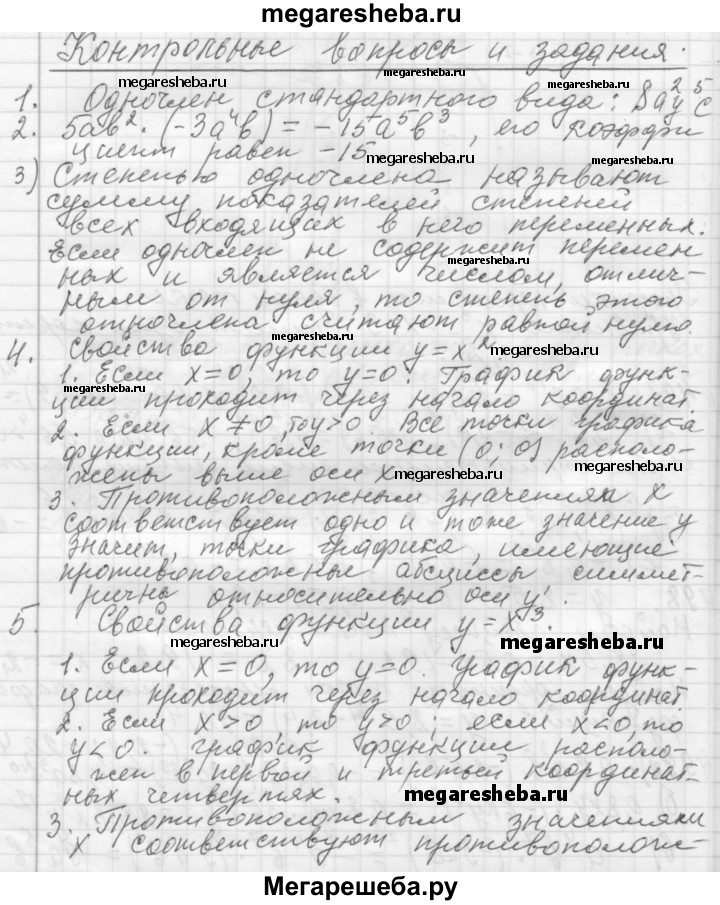 megaresheba.ru
Контрольные вопросы и задания.
megaresheba.ru megaresheba.ru
1. Одночлен стандартного вида: 8ay²c⁵
2. 5ab²·(-3a⁴b) = -15a⁵b³, его коэффи
циент равен -15 megaresheba.ru
3) Степенью одночлена называют
сумму показателей степеней
megaresheba.ru
всех входящих в него переменных.
Если одночлен не содержит перемен
megaresheba.ru
ных и является числом, отлич-
ным от нуля, то степень этого
одночлена считают равной нулю.
megaresheba.ru
4. Свойства функции y=x²
1. Если x=0, то y=0. График функ-
megaresheba.ru
ции проходит через начало координат.
2. Если x≠0, то y>0. Все точки графика
megaresheba.ru
функции, кроме точки (0; 0) располо-
жены выше оси x megaresheba.ru
3. Противоположным значениям x
соответствует одно и тоже значение y
значит, точки графика, имеющие
megaresheba.ru
противоположные абсциссы симмет-
ричны относительно оси y.
5. Свойства функции y=x³.
megaresheba.ru megaresheba.ru
1. Если x=0, то y=0. График функ-
ции проходит через начало координат.
2. Если x>0 то y>0; если x<0, то
y<0. График функции располо-
жен в первой и третьей координат-
ных четвертях. megaresheba.ru
3. Противоположным значениям
x соответствуют противополож-
megaresheba.ru
Мегарешеба.ру